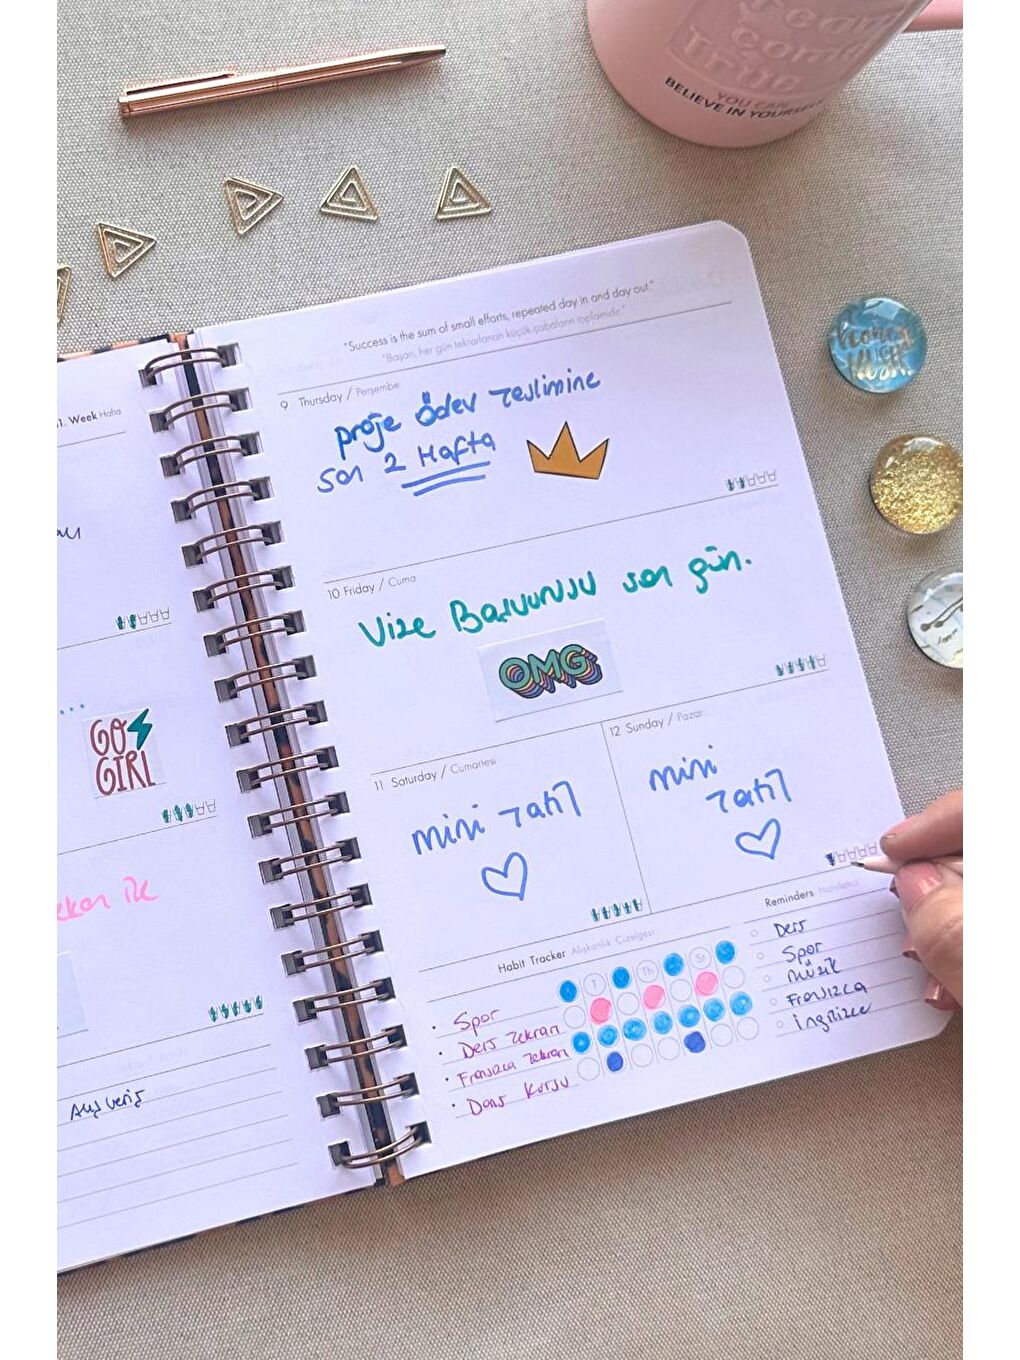 come
True
YOU CAN
BELIEVE IN YOURSELF
"Success is the sum of small efforts, repeated day in and day out."
"Başarı, her gün tekrarlanan küçük çabaların toplamıdır."
9 Thursday / Perşembe
proje ödev teslimine
son 2 Hafta
10 Friday / Cuma
Vize Başvurusu son gün.
OMG
11 Saturday / Cumartesi
mini Tatil
12 Sunday / Pazar
mini
Tatil
Habit Tracker Alışkanlık Çizelgesi
T Th St
• Spor
• Ders Tekrarı
• Fransızca Tekrarı
• Dans Kursu
Reminders Hatırlatıcı
Ders
Spor
müzik
Fransızca
ingilizce
1. Week Hafta
GO
GIRL
Alışveriş